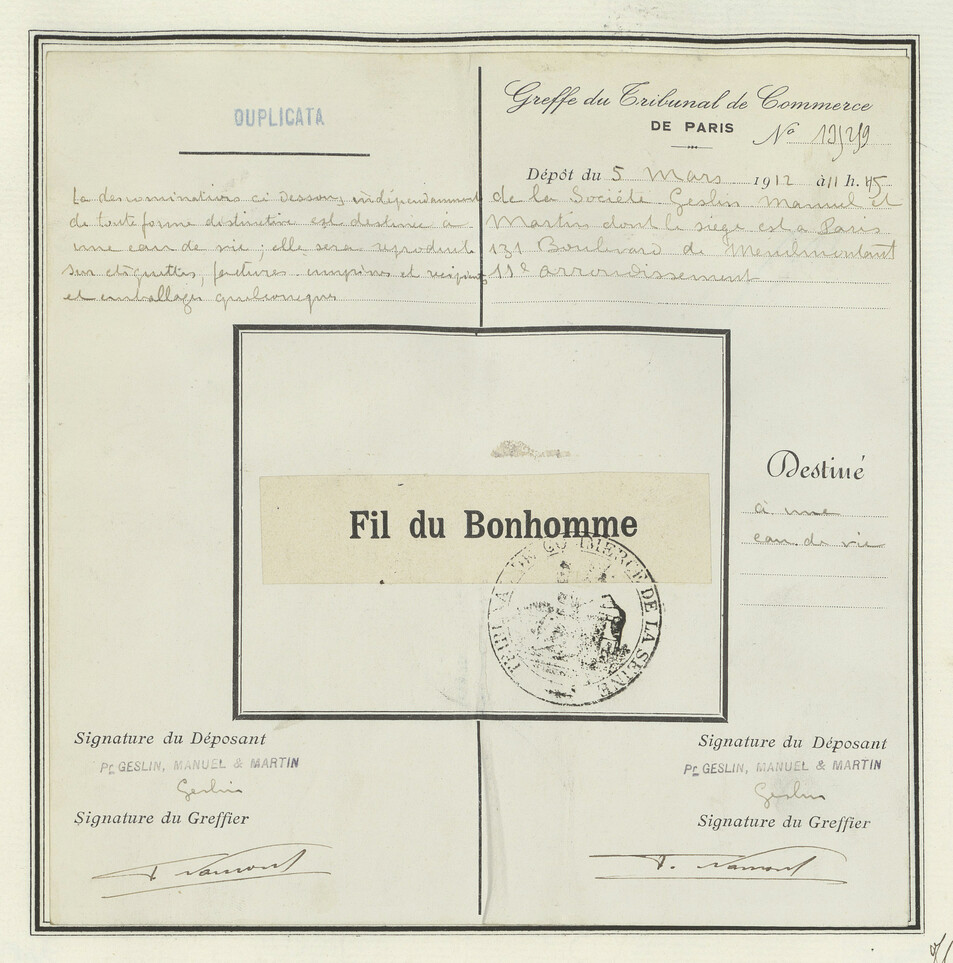 DUPLICATA
La denomination ci dessous, indépendamment
de toute forme distinctive est destinée à
une eau de vie ; elle sera reproduite
sur etiquettes, factures imprimés et récipients
et emballages quelconques
Greffe du Tribunal de Commerce
DE PARIS
No
Dépôt du 5 Mars 1912 à 11 h. 45
de la Société Geslin Manuel et
Martin dont le siège est a Paris
131 Boulevard de Menilmontant
11e arrondissement
Fil du Bonhomme
TRIBUNAL DE COMMERCE DE LA SEINE
Destiné
à une
eau de vie
Signature du Déposant
Pr GESLIN, MANUEL & MARTIN
Geslin
Signature du Greffier
Signature du Déposant
Pr GESLIN, MANUEL & MARTIN
Geslin
Signature du Greffier